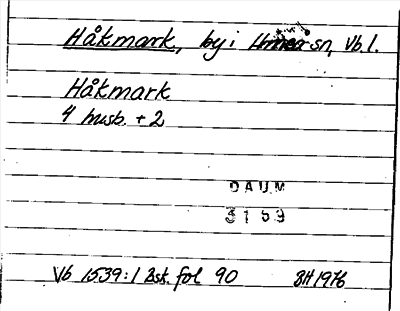 Håkmark, by i Umeå sn, Vb l.
Håkmark
4 husb. + 2
DAUM
3159
Vb 1539:1 Bsk. fol 90 BH 1976